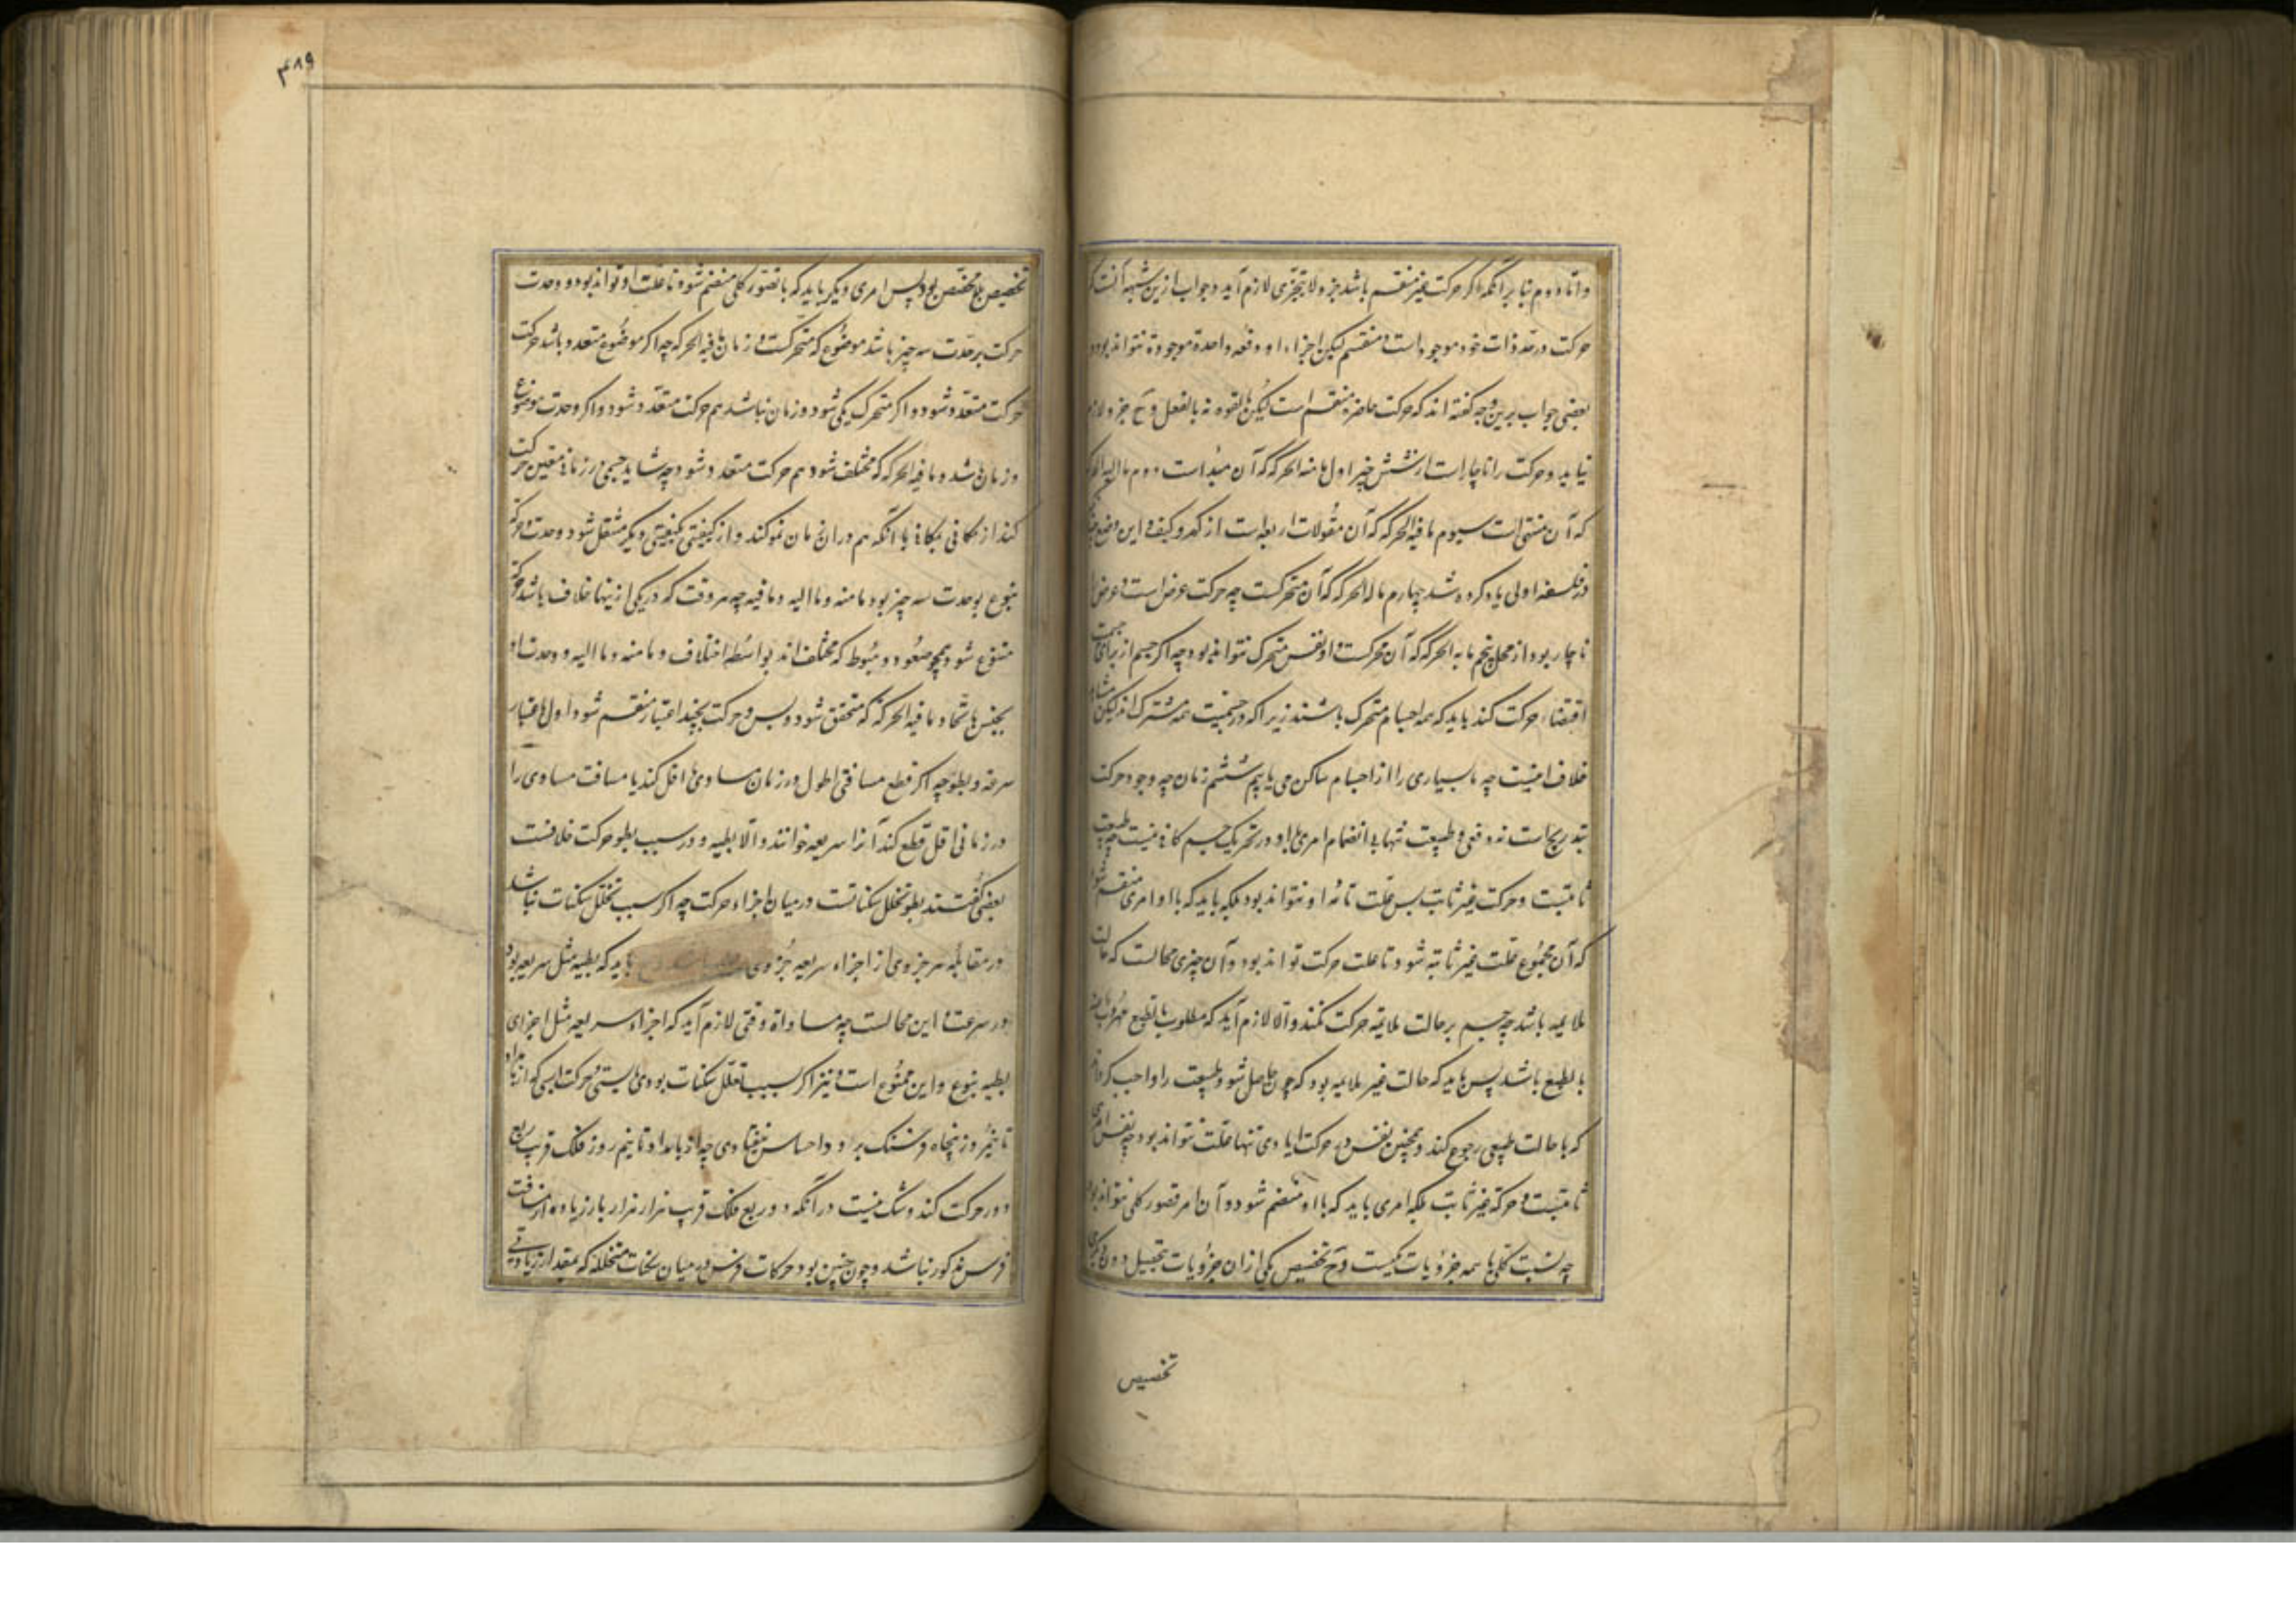 واما دوم بنا بر آنکه اگر حرکت غیر منقسم باشد جزو لا یتجزی لازم آید و جواب ازین شبهه آنست که
حرکت در حد ذات خود موجود است و منقسم لیکن اجزاء او دفعه واحدة موجودة نتواند بود و
بعضی جواب برین وجه گفته اند که حرکت حاضره منقسم است لیکن بالقوه نه بالفعل و ح جزو لازم
نیاید و حرکت را ناچارست از شش چیز اول ما منه الحرکه که آن مبداست دوم ما الیه الحرکه
که آن منتهی است سیوم ما فیه الحرکه که آن مقولات اربعه است از کم و کیف و این و وضع چنانکه
در فلسفه اولی یاد کرده شد چهارم ما له الحرکه که آن متحرکست چه حرکت عرض است و عرض را
ناچار بود از محل پنجم ما به الحرکه که آن محرکست و او نفس متحرک نتواند بود چه اگر جسم از برای جسمیت
اقتضاء حرکت کند باید که همه اجسام متحرک باشند زیرا که در جسمیت همه مشترک اند لیکن مشاهد
خلاف اینست چه ما بسیاری را از اجسام ساکن می یابیم ششم زمان چه وجود حرکت
بتدریج است نه دفعی و طبیعت تنها بی انضمام امری با او در تحریک جسم کافی نیست چه طبیعت
ثابتست و حرکت غیر ثابت پس علت تامه او نتواند بود بلکه باید که با او امری منضم شود
که آن مجموع علت غیر ثابته شود تا علت حرکت تواند بود و آن چیزی محالست که حالت
ملایمه باشد چه جسم بر حالت ملایمه حرکت نکند والا لازم آید که مطلوب بالطبع مهروب عنه
بالطبع باشد پس باید که حالت غیر ملایمه بود که چون حاصل شود طبیعت را واجب کرداند
که با حالت طبیعی رجوع کند و همچنین نفس در حرکت ارادی تنها علت نتواند بود چه نفس امری
ثابتست و حرکة غیر ثابت بلکه امری باید که با او منضم شود و آن امر تصور کلی نتواند بود
چه نسبت کلی با همه جزویات یکیست و ح تخصیص یکی از آن جزویات بتحصیل دون دیگری
تخصیص
۴۸۹
تخصیص بلا مخصص بود پس امری دیگر باید که با تصور کلی منضم شود تا علت او تواند بود و وحدت
حرکت بر وحدت سه چیز باشد موضوع که متحرکست و زمان و ما فیه الحرکه چه اگر موضوع متعدد باشد حرکت
حرکت متعدد شود و اگر متحرک یکی شود و زمان نباشد هم حرکت متعدد شود و اگر وحدت موضوع
و زمان باشد و ما فیه الحرکه که مختلف شود هم حرکت متعدد شود چه شاید جسمی در زمانی معین حرکت
کند از مکانی بمکانی با آنکه هم در آن زمان نمو کند و از کیفیتی بکیفیتی دیگر منتقل شود و وحدت حرکة
بنوع بوحدت سه چیز بود ما منه و ما الیه و ما فیه چه هر وقت که در یکی ازینها خلاف باشد حرکة
متنوع شود همچو صعود و هبوط که مختلف اند بواسطه اختلاف و ما منه و ما الیه و وحدت او
بجنس باتحاد ما فیه الحرکة که متحقق شود و بس و حرکت بچند اعتبار منقسم شود اول باعتبار
سرعة و بطو چه اگر قطع مسافتی اطول در زمان مساوی یا اقل کند یا مسافت مساوی را
در زمانی اقل قطع کند آنرا سریعه خوانند والا بطیه و در سبب بطو حرکت خلافست
بعضی گفتند بطو تخلل سکناتست در میان اجزاء حرکت چه اگر سبب تخلل سکنات نباشد
در مقابله هر جزوی از اجزاء سریعه جزوی باید که بطیه مثل سریعه بود
در سرعت و این محالست چه مساواة وقتی لازم آید که اجزاء سریعه مثل اجزای
بطیه بنوع و این ممنوع است و نیز اگر سبب تخلل سکنات بودی بایستی حرکت اسبی که از بامداد
تا نیم روز پنجاه فرسنک برود احساس نیفتادی چه از بامداد تا نیم روز فلک قریب ربع
دور حرکت کند و شک نیست در آنکه دور ربع فلک قریب هزار هزار بار زیاده از مسافت
فرس مذکور نباشد و چون چنین بود حرکات فرس در میان سکنات متخلله که مقدار زیادتی